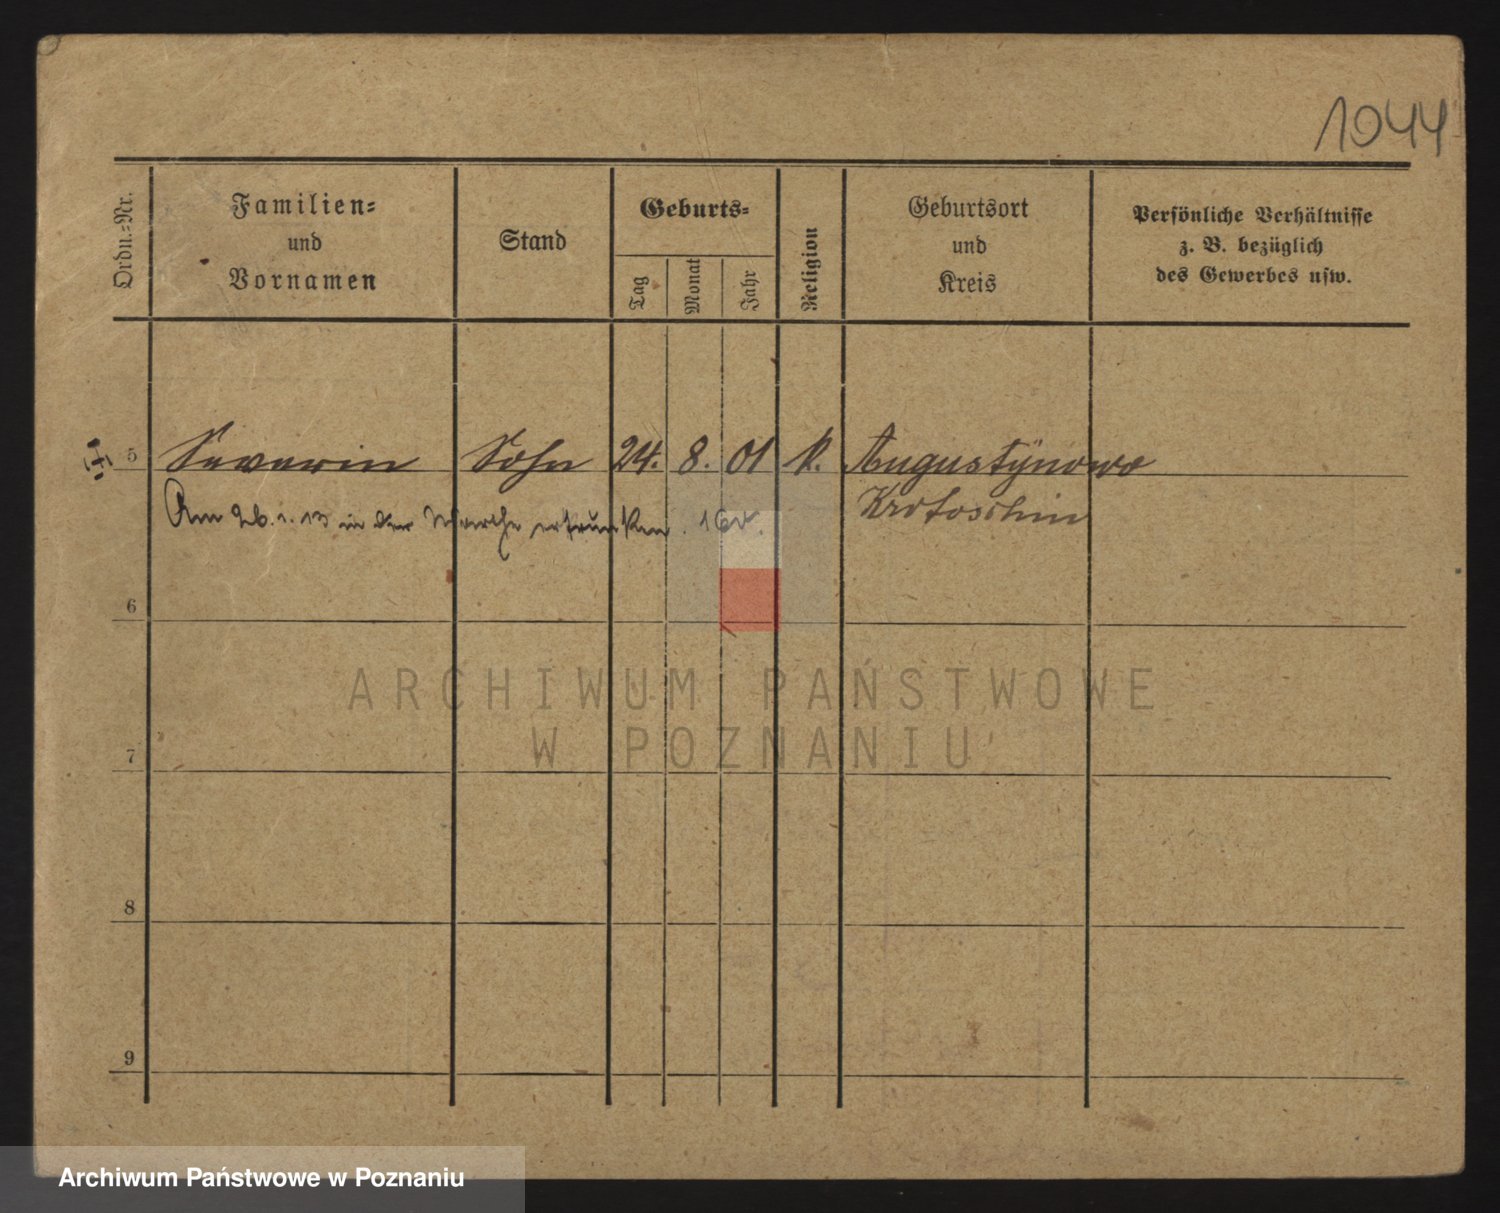 1044
Ordn.=Nr.
Familien=
und
Vornamen
Stand
Geburts=
Tag
Monat
Jahr
Religion
Geburtsort
und
Kreis
Persönliche Verhältnisse
z. B. bezüglich
des Gewerbes usw.
5 Severin Sohn 24. 8. 01 k. Augustÿnowo
Krotoschin
Am 26. 1. 13 in der Warthe ertrunken.
6
7
8
9
ARCHIWUM PAŃSTWOWE
W POZNANIU
Archiwum Państwowe w Poznaniu